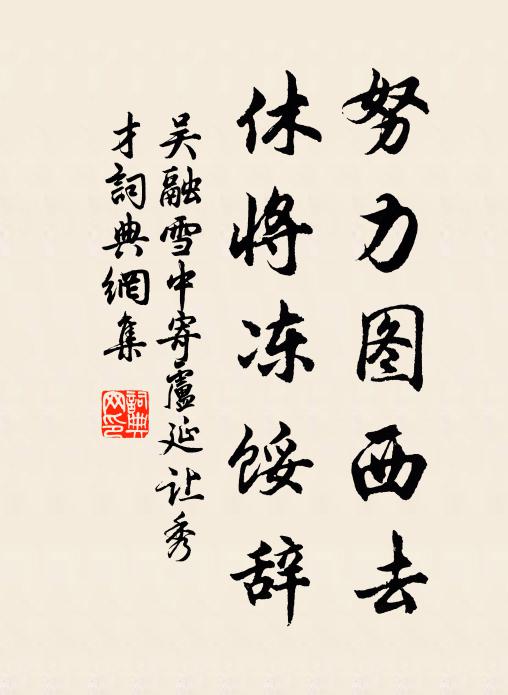 努力图西去
休将冻馁辞
吴融雪中寄盧延让秀
才詞典網集
詞典
网印